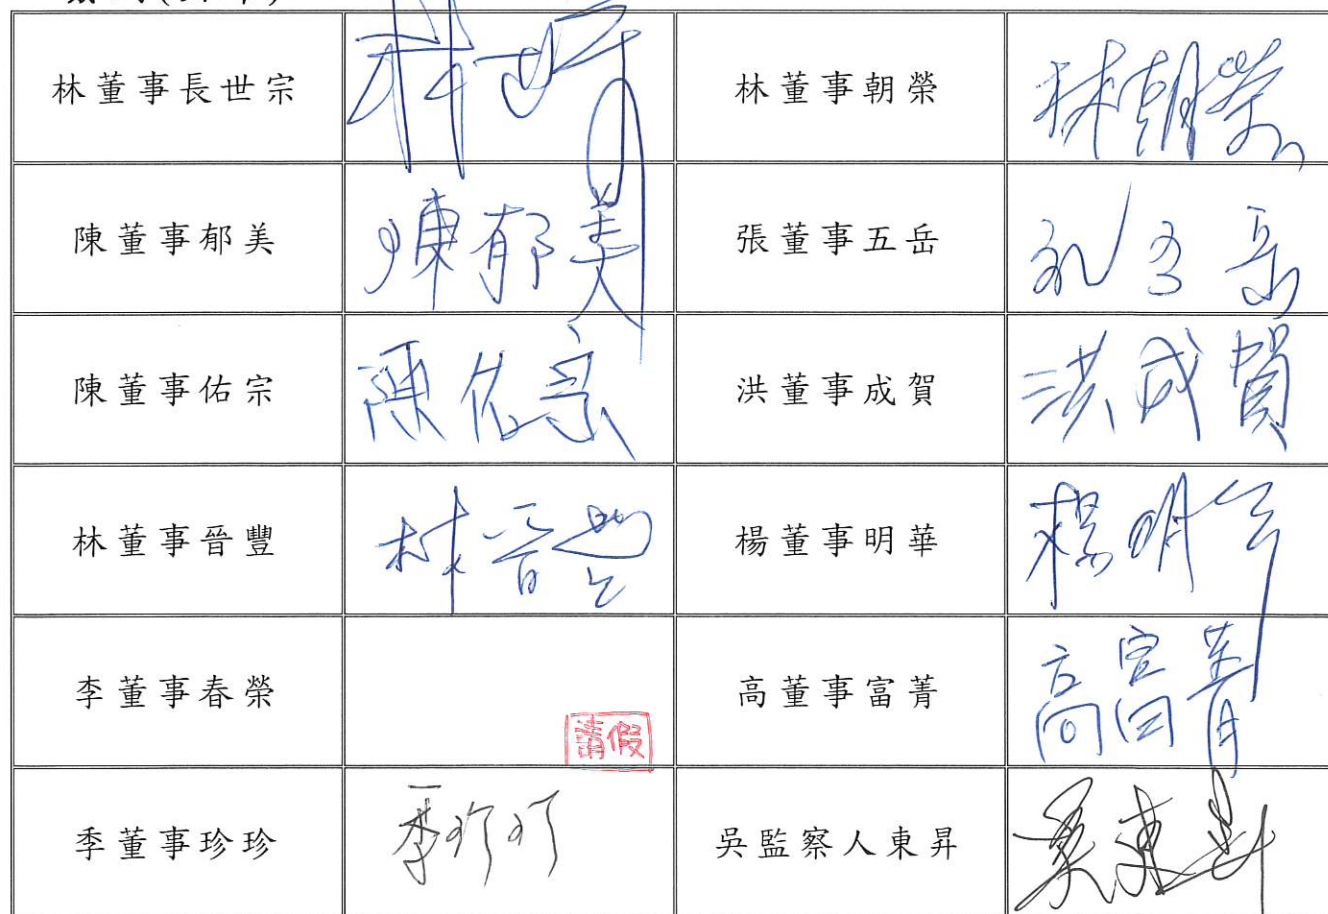 林董事長世宗 林世宗 林董事朝榮 林朝榮
陳董事郁美 陳郁美 張董事五岳 張五岳
陳董事佑宗 陳佑宗 洪董事成賀 洪成賀
林董事晉豐 林晉豐 楊董事明華 楊明华
李董事春榮 請假 高董事富菁 高富菁
季董事珍珍 季珍珍 吳監察人東昇 吳東昇